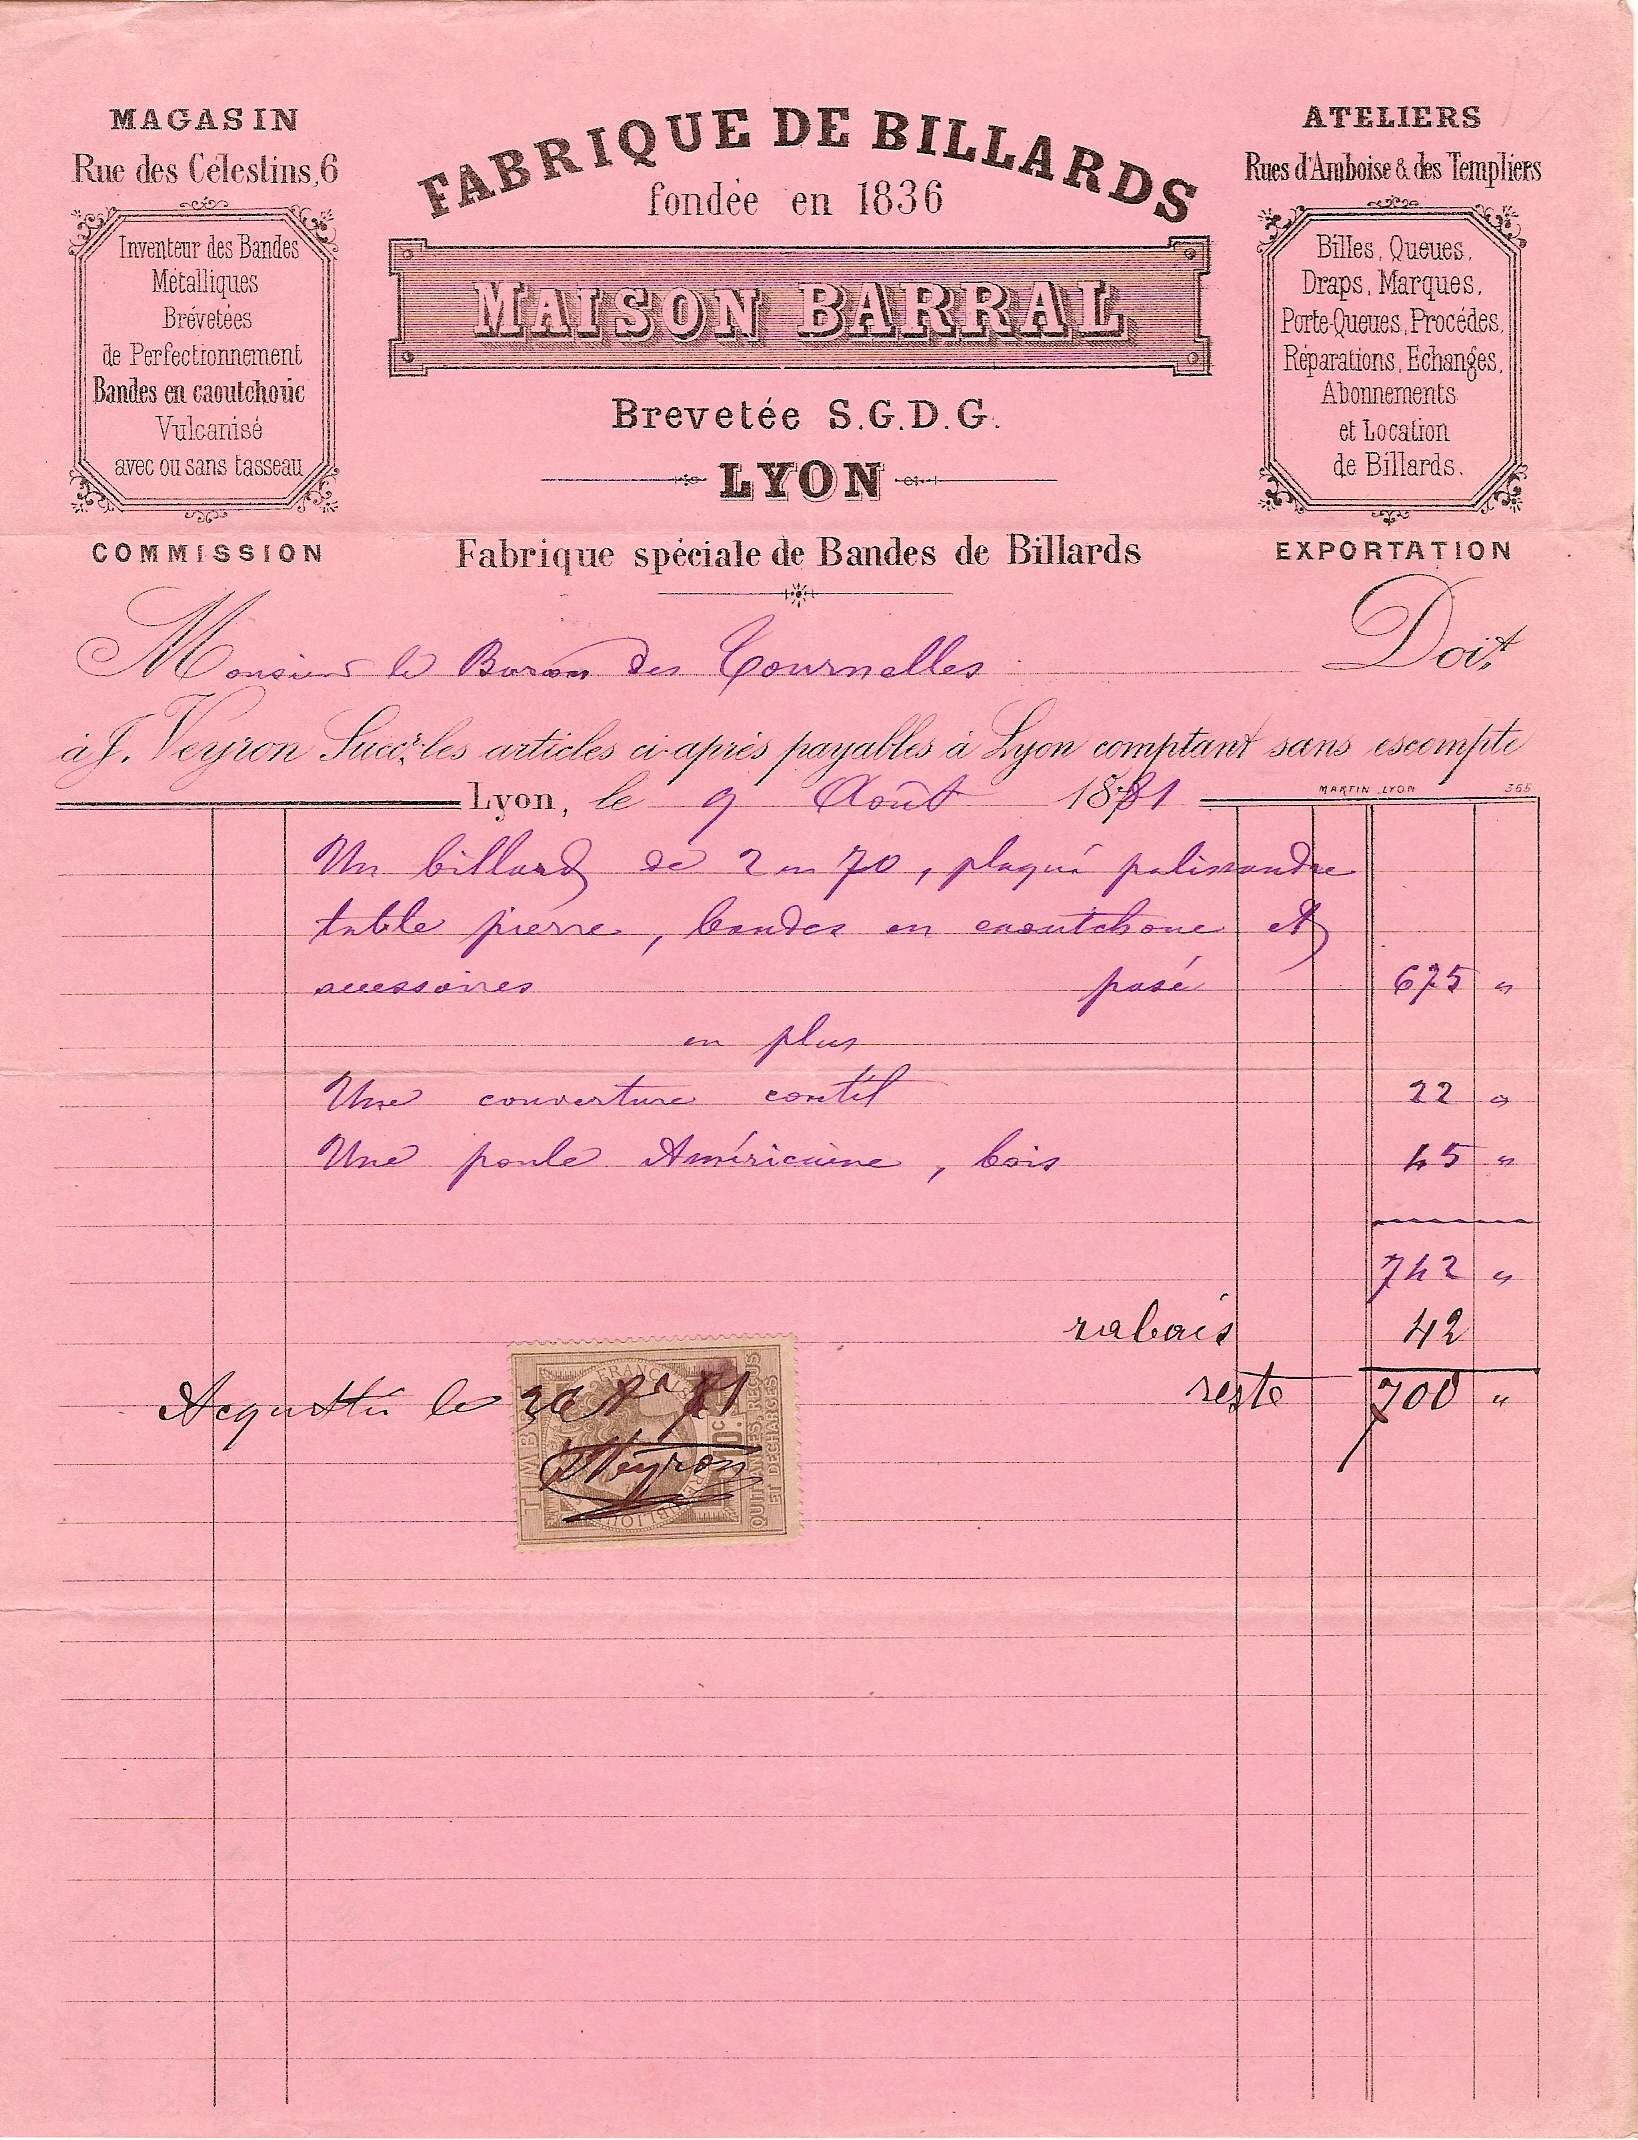 MAGASIN
Rue des Célestins, 6
Inventeur des Bandes
Métalliques
Brévetées
de Perfectionnement
Bandes en caoutchouc
Vulcanisé
avec ou sans tasseau
COMMISSION
FABRIQUE DE BILLARDS
fondée en 1836
MAISON BARRAL
Brevetée S.G.D.G.
LYON
Fabrique spéciale de Bandes de Billards
ATELIERS
Rues d'Amboise & des Templiers
Billes, Queues,
Draps, Marques,
Porte-Queues, Procédés,
Réparations, Echanges,
Abonnements
et Location
de Billards.
EXPORTATION
Monsieur le Baron des Tournelles Doit
à J. Veyron Succr. les articles ci-après payables à Lyon comptant sans escompte
Lyon, le 9 Août 1881
MARTIN LYON 355
Un billard de 2 m 70, plaqué palissandre
table pierre, bandes en caoutchouc et
accessoires posé 675 "
en plus
Une couverture coutil 22 "
Une poule Américaine, bois 45 "
742 "
rabais 42
Acquitté le 81 reste 700 "
Veyron
TIMBRE
QUITTANCES, REÇUS
ET DÉCHARGES
10 c